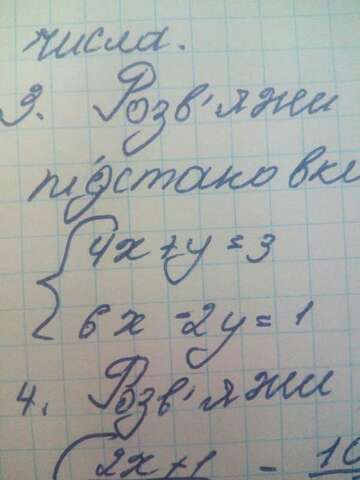 числа.
3. Розв'яжи
підстановк
4x+y=3
6x-2y=1
4. Розв'яжи
2x+1 - 10